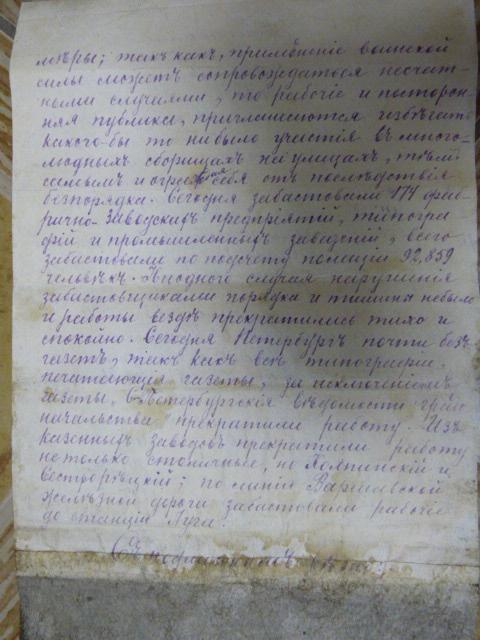 мѣры; такъ какъ, примѣненіе воинской
силы можетъ сопровождаться несчаст-
ными случаями, то рабочіе и посторон-
няя публика, приглашаются избѣгать
какого-бы то нибыло участія въ много-
людныхъ сборищахъ на улицахъ, тѣмъ
самымъ и ограждая себя отъ послѣдствія
безпорядка. Сегодня забастовали 174 фаб-
рично-заводскихъ предпріятій, типогра-
фій и промышленныхъ заведеній, всего
забастовали по подсчету полиціи 92.859
человѣкъ. Ниодного случая нарушенія
забастовщиками порядка и тишины небыло
и работы вездѣ прекратились тихо и
спокойно. Сегодня Петербургъ почти безъ
газетъ, такъ какъ всѣ типографіи,
печатающія газеты, за исключеніемъ
газеты, С.Петербургскія вѣдомости град
начальства прекратили работу. Изъ
казенныхъ заводовъ прекратили работу
нетолько столичные, но Колпинскій и
Сестрорѣцкій; по линіи Варшавской
желѣзной дороги забастовали рабочіе
до станціи Луга.